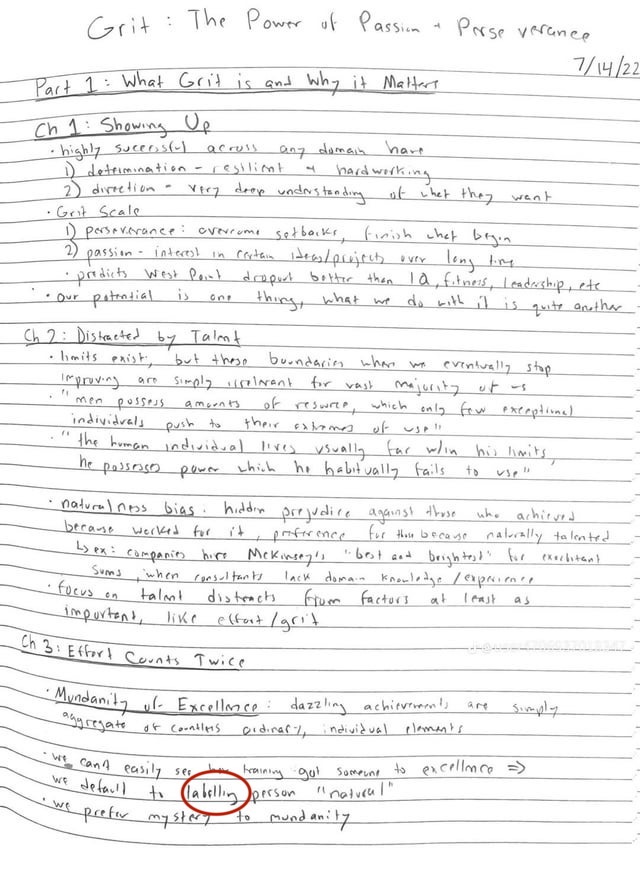 Grit : The Power of Passion + Perseverance
7/14/22
Part 1 : What Grit is and Why it Matters
Ch 1 : Showing Up
• highly successful across any domain have
1) determination - resilient + hardworking
2) direction - very deep understanding of what they want
• Grit Scale
1) perseverance : overcome setbacks, finish what begin
2) passion - interest in certain ideas/projects over long time
• predicts West Point dropout better than IQ, fitness, leadership, etc
• our potential is one thing, what we do with it is quite another
Ch 2 : Distracted by Talent
• limits exist, but these boundaries when we eventually stop
improving are simply irrelevant for vast majority of us
• "men possess amounts of resource, which only few exceptional
individuals push to their extremes of use"
• "the human individual lives usually far w/in his limits,
he possesses power which he habitually fails to use"
• naturalness bias. hidden prejudice against those who achieved
because worked for it, preference for thou because naturally talented
↳ ex : companies hire McKinsey's "best and brightest" for exorbitant
sums, when consultants lack domain knowledge / experience
• focus on talent distracts from factors at least as
important, like effort / grit
Ch 3 : Effort Counts Twice
• Mundanity of Excellence : dazzling achievements are simply
aggregate of countless ordinary, individual elements
• we can't easily see how training got someone to excellence ⇒
we default to labelling person "natural"
• we prefer mystery to mundanity